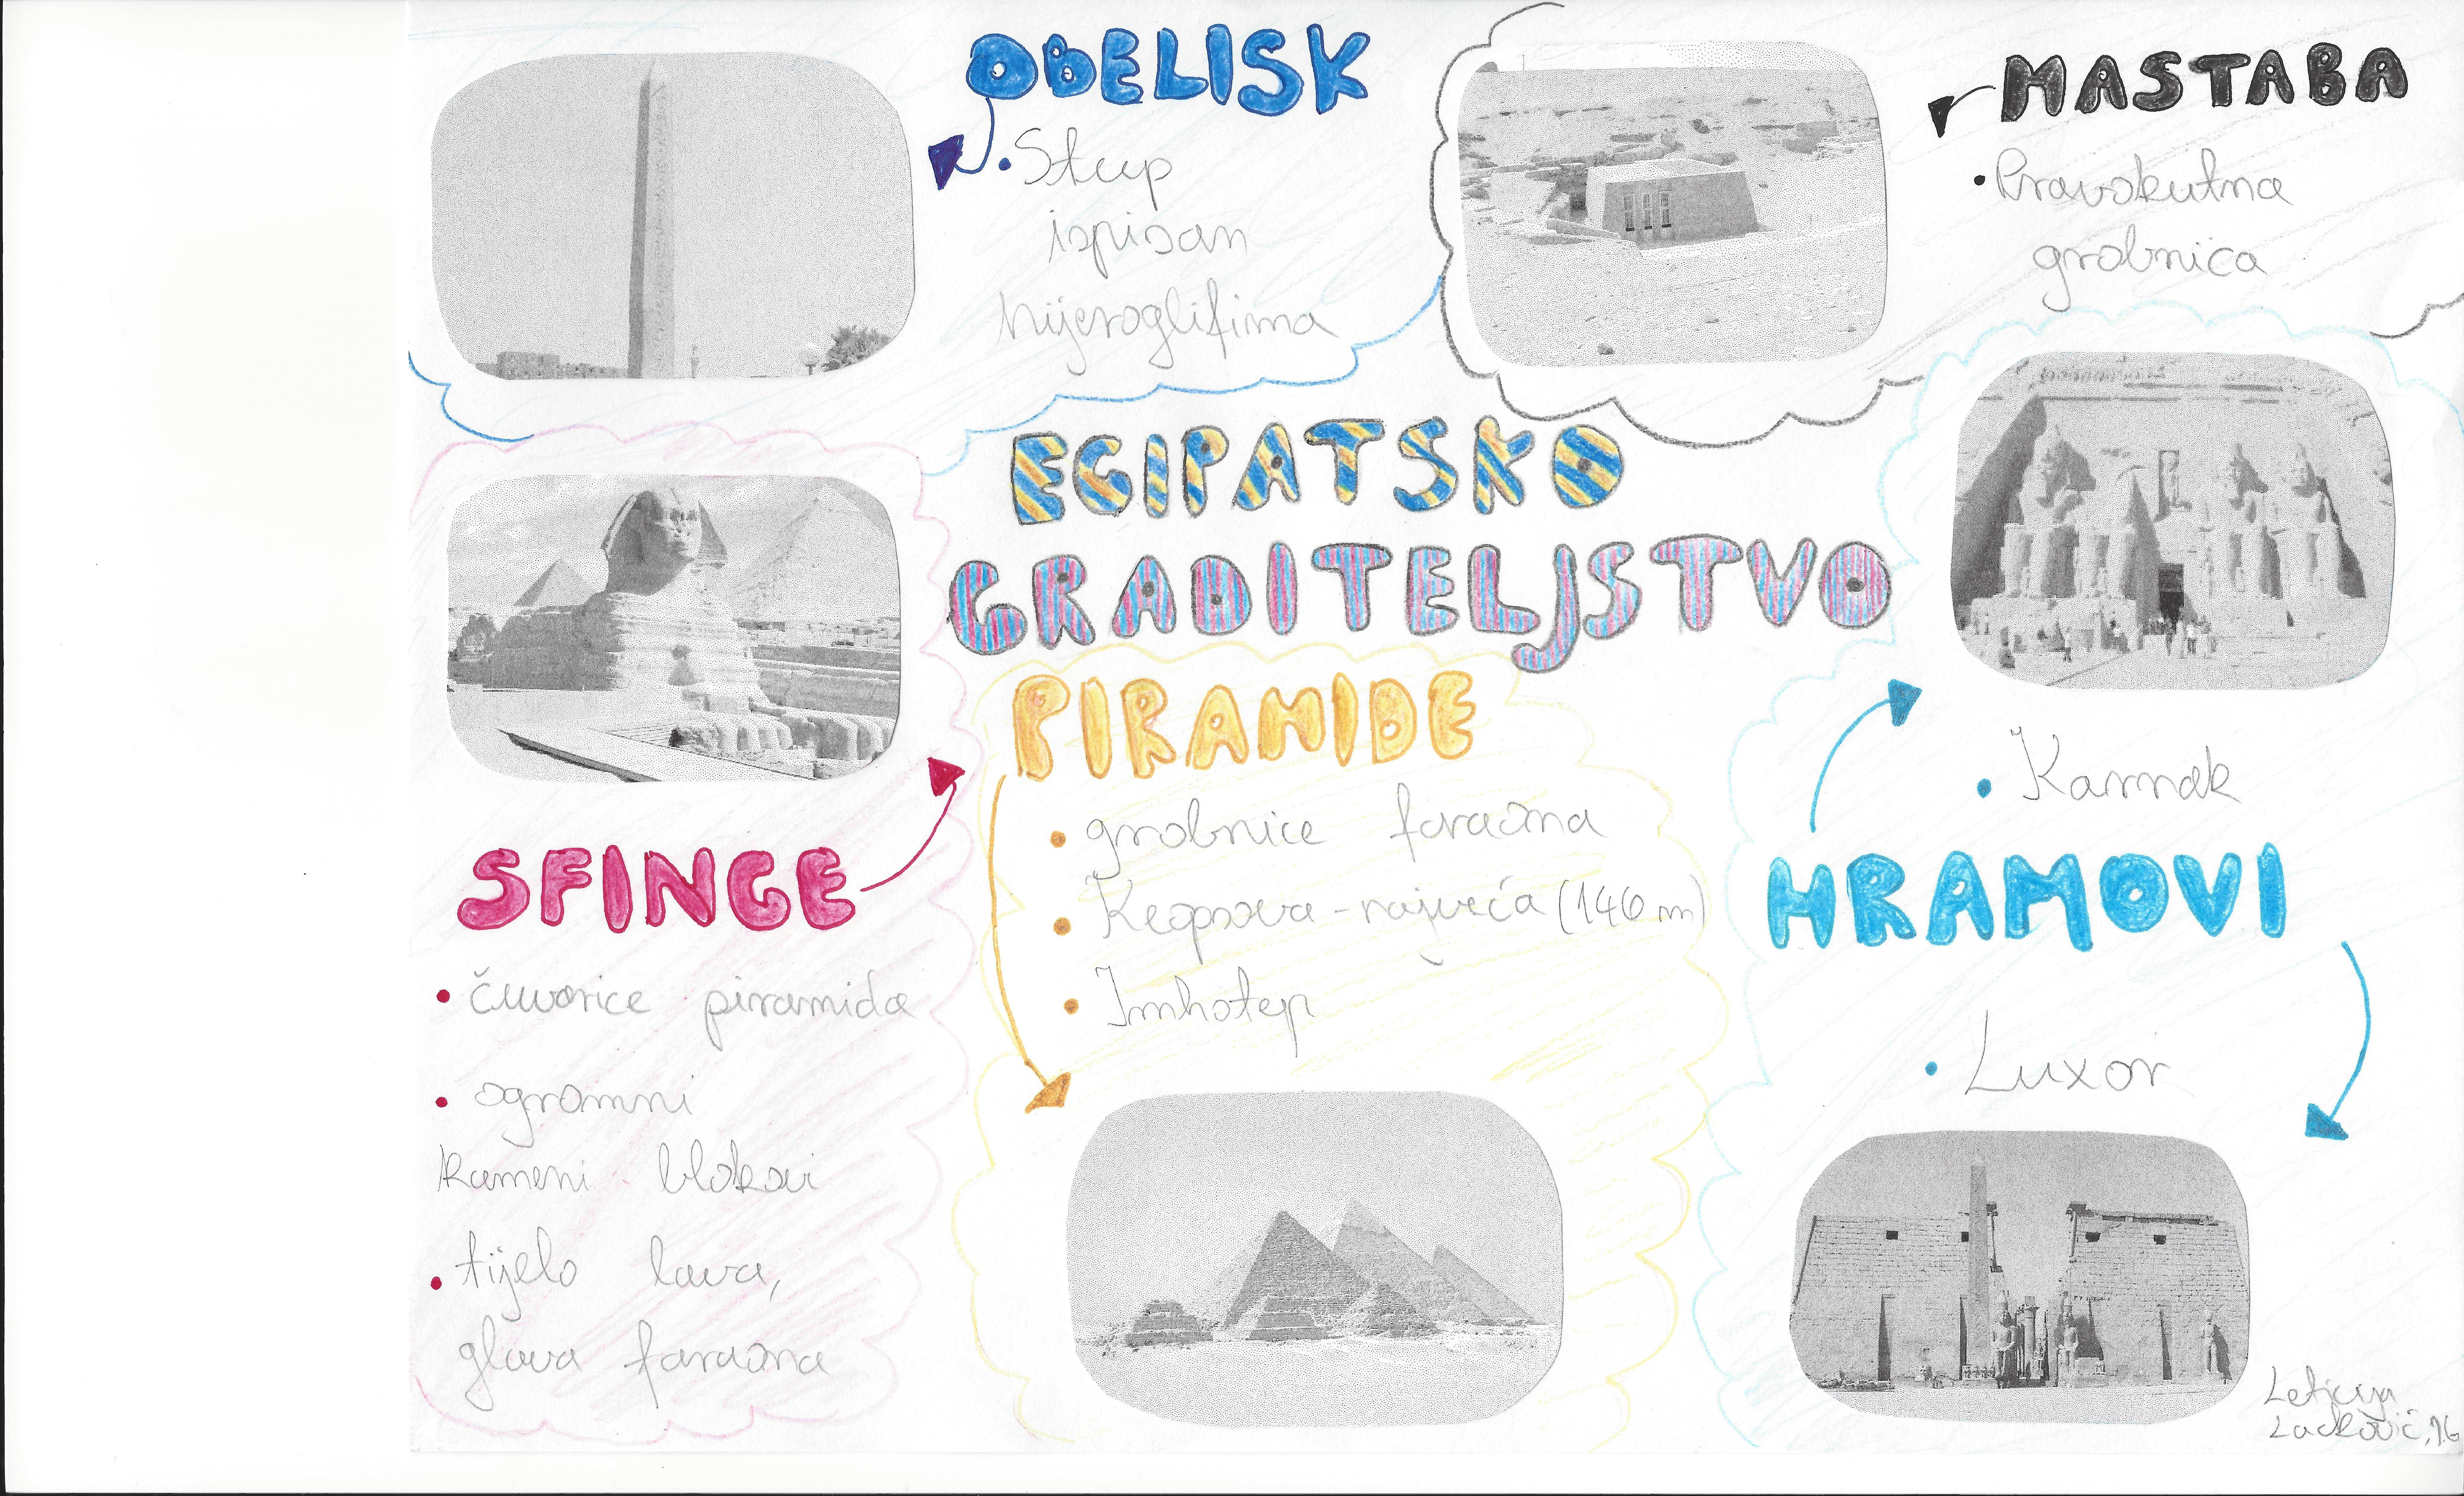 OBELISK
• Stup
ispisan
hijeroglifima
MASTABA
• Pravokutna
grobnica
EGIPATSKO
GRADITELJSTVO
SFINGE
• čuvarice piramida
• ogromni
kameni blokovi
• tijelo lava,
glava faraona
PIRAMIDE
• grobnice faraona
• Keopsova - najveća (146 m)
• Imhotep
• Karnak
HRAMOVI
• Luxor
Leticija
Lacković, 1.G